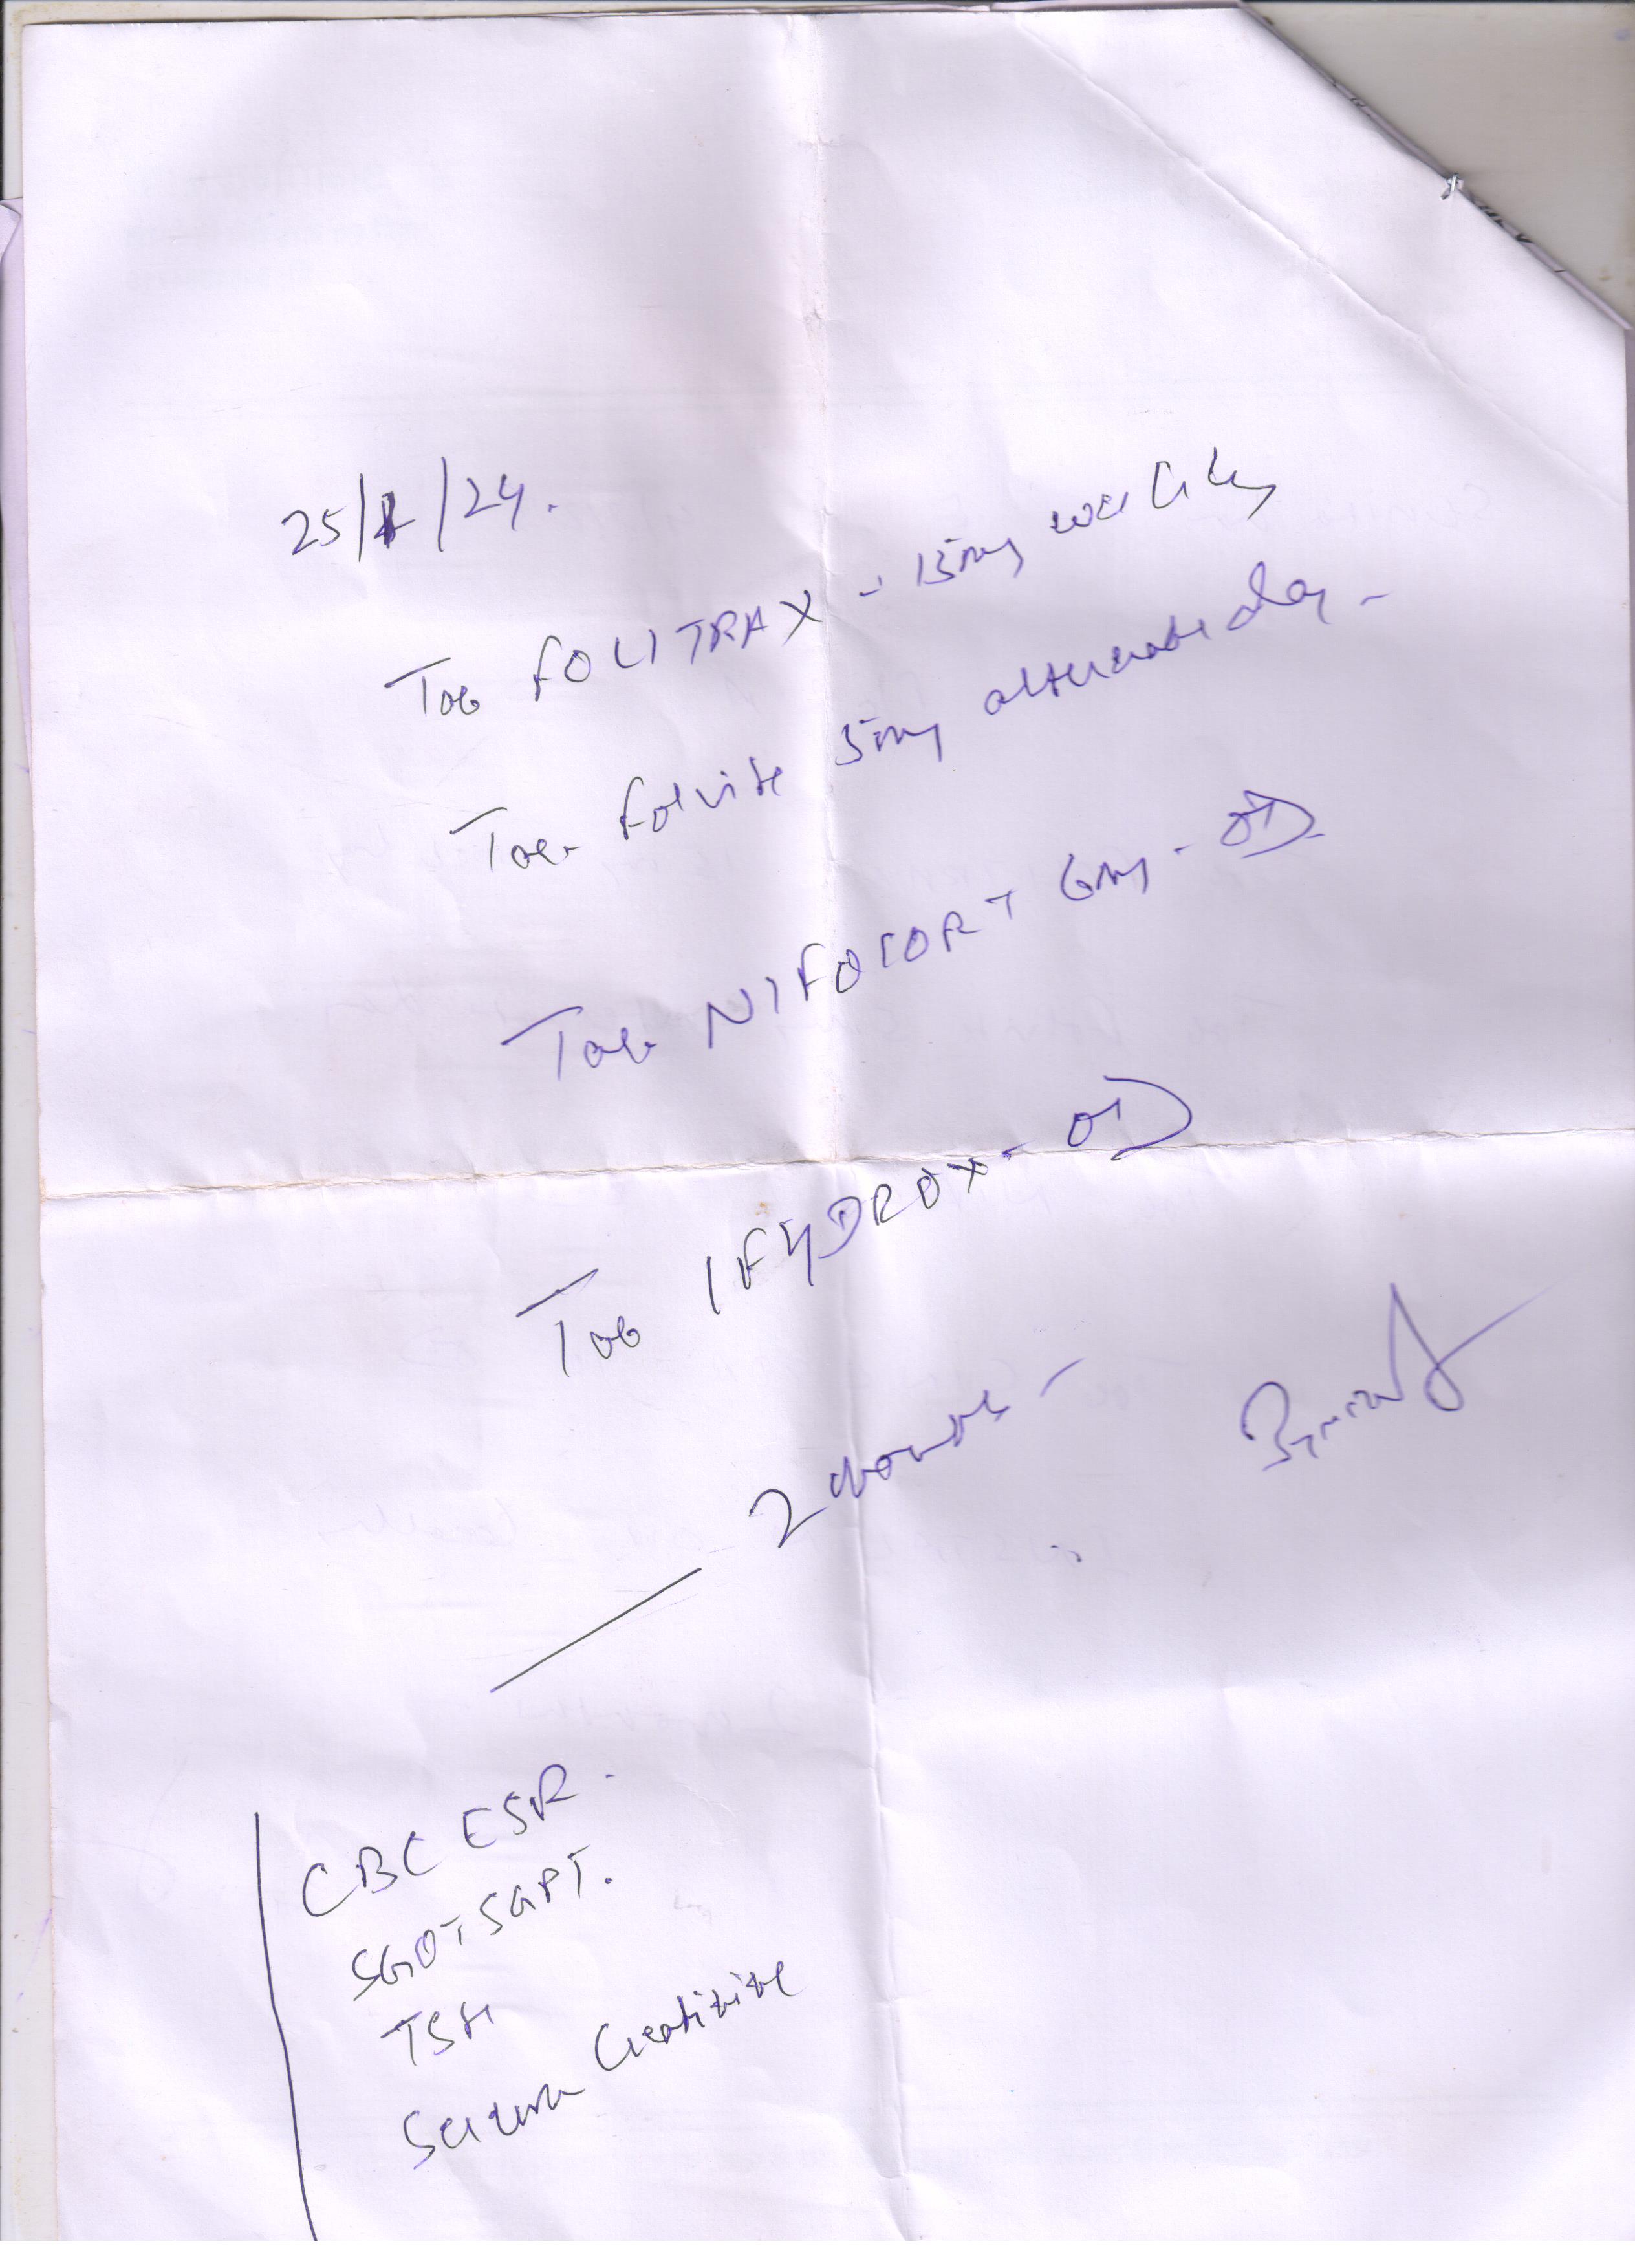 25/1/24.
Tab FOLITRAX - 15mg weekly
Tab Folvite 5mg alternate day -
Tab NIFOCORT 6mg - OD
Tab IFYDROX - OD
2 months -
CBC ESR.
SGOT SGPT.
TSH
Serum Creatinine